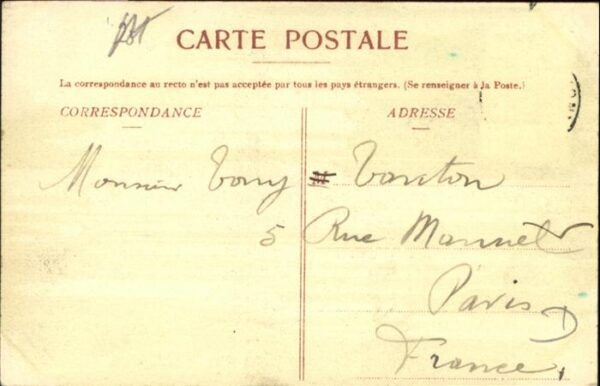 CARTE POSTALE
La correspondance au recto n'est pas acceptée par tous les pays étrangers. (Se renseigner à la Poste.)
CORRESPONDANCE
ADRESSE
Monsieur Tony
5 Rue Mannet
Paris
France,